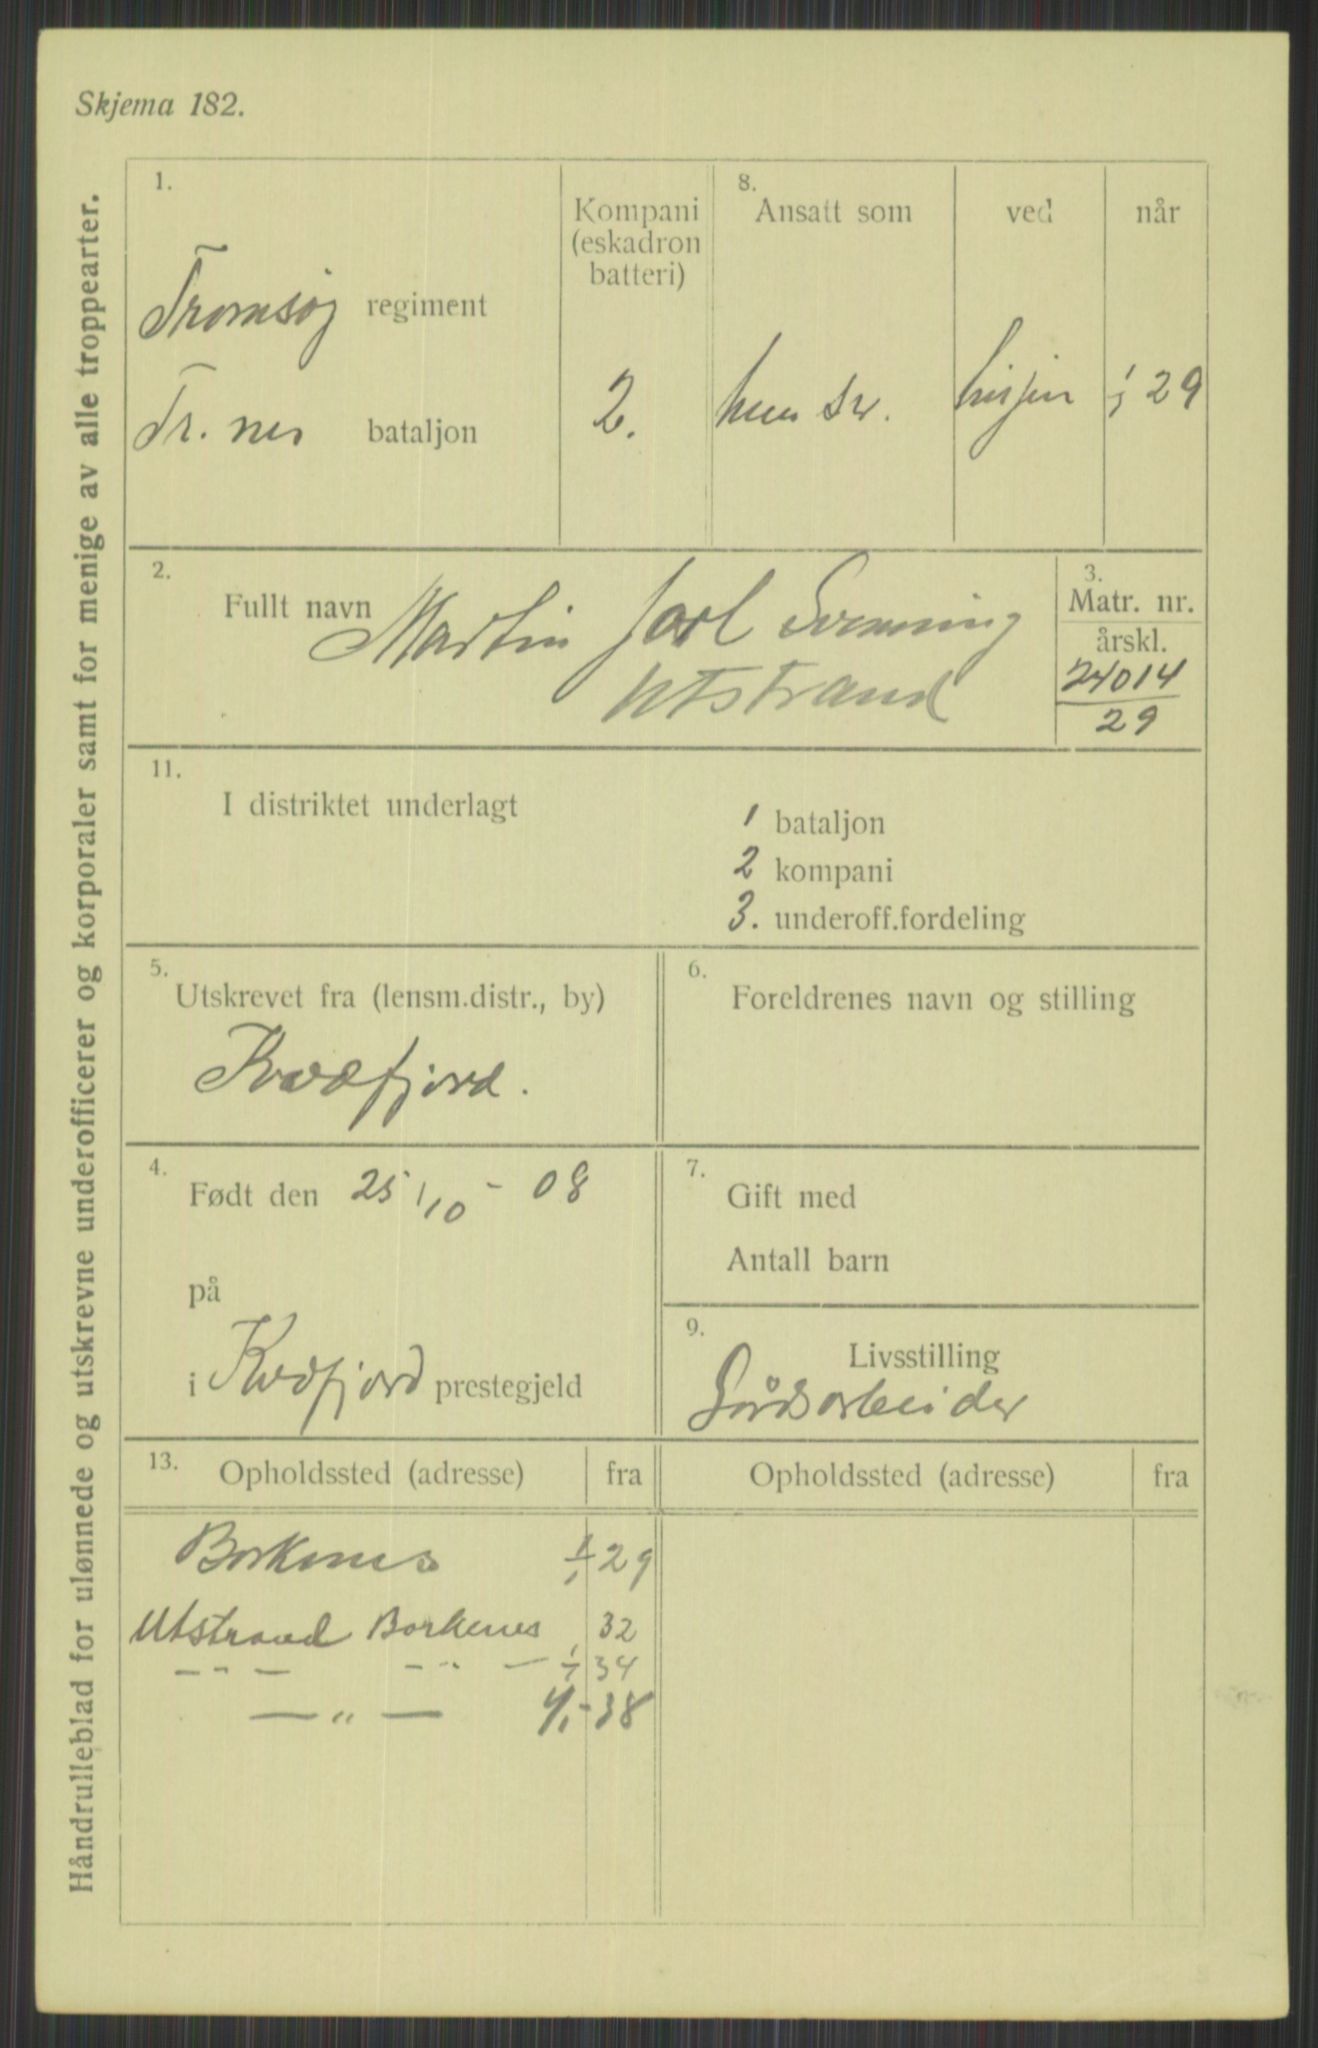 Skjema 182.
Håndrulleblad for ulønnede og utskrevne underofficerer og korporaler samt for menige av alle troppearter.
1.
Tromsøy regiment
Tr. nes bataljon
Kompani
(eskadron
batteri)
2.
8.
Ansatt som
ved
når
29
2.
Fullt navn Martin Jarl Svenning
Utstrand
3.
Matr. nr.
årskl.
24014
29
11.
I distriktet underlagt
1 bataljon
2 kompani
3. underoff.fordeling
5.
Utskrevet fra (lensm.distr., by)
Kvæfjord.
6.
Foreldrenes navn og stilling
4.
Født den 25/10 - 08
på
i Kvæfjord prestegjeld
7.
Gift med
Antall barn
9.
Livsstilling
Gårdsarbeider
13.
Opholdssted (adresse) fra
Opholdssted (adresse) fra
Borkenes 1/1 29
Utstrand Borkenes 32
— " — — " — 1/1 34
— " — 1/1-38